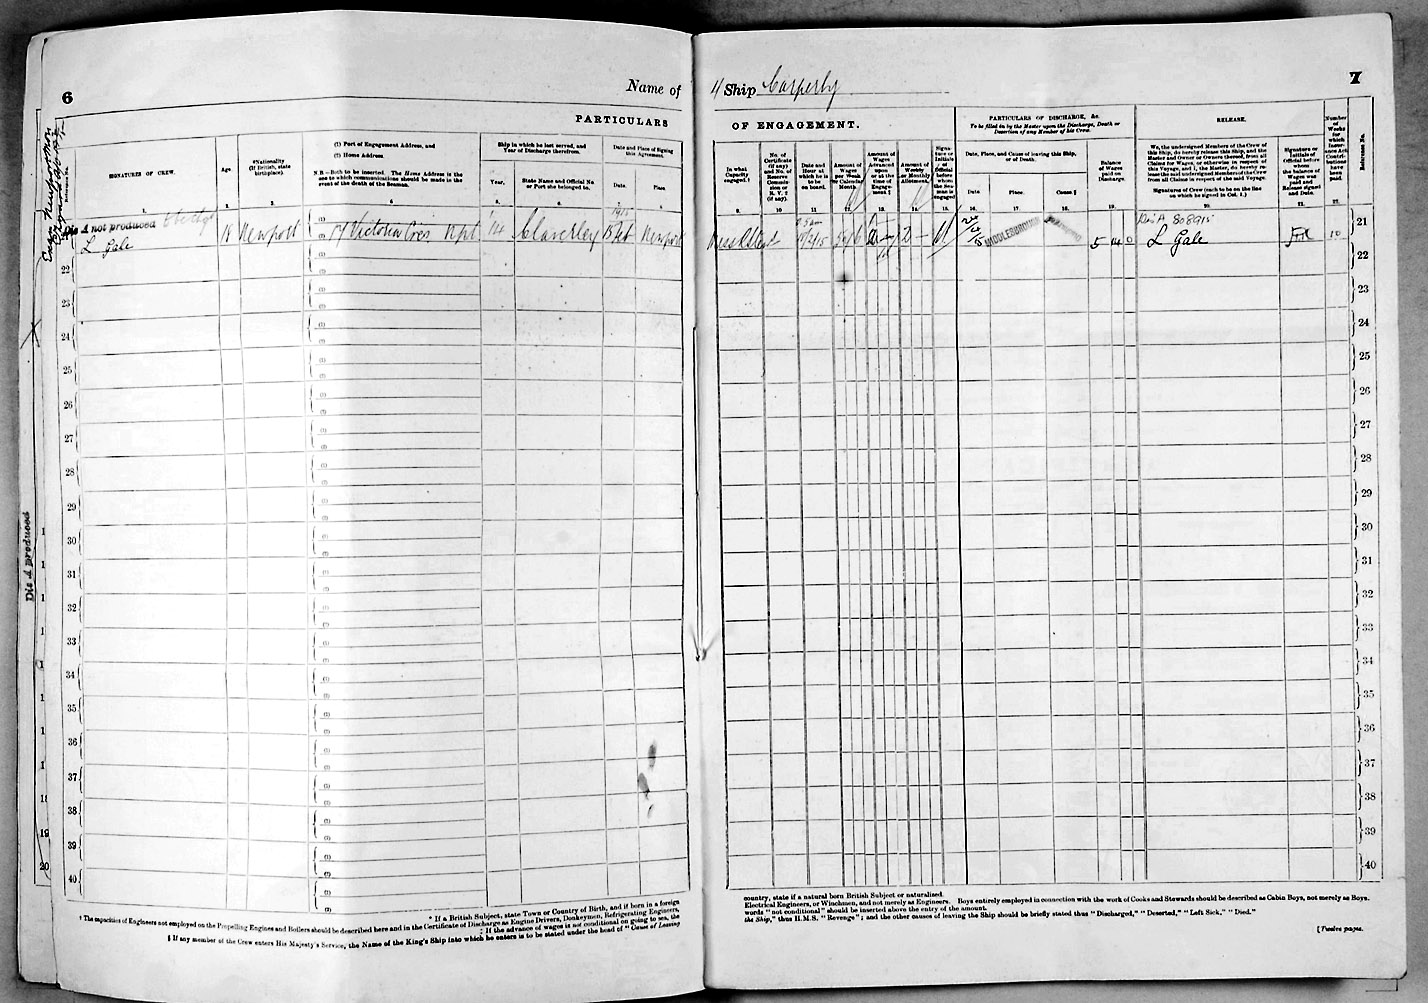 6
Name of
PARTICULARS
SIGNATURES OF CREW.
Age.
*Nationality
(If British, state
birthplace).
(1) Port of Engagement Address, and
(2) Home Address.
N.B.—Both to be inserted. The Home Address is the
one to which communications should be made in the
event of the death of the Seaman.
Ship in which he last served, and
Year of Discharge therefrom.
Year.
State Name and Official No
or Port she belonged to.
Date and Place of Signing
this Agreement.
Date.
Place.
1.
2.
3.
4
5.
6.
7.
8
Dis A not produced
L Gale
18
Newport
Victoria Cres Npt
14
1915
Newport
22
23
24
25
26
27
28
29
30
31
32
33
34
35
36
37
38
39
40
Dis A produced
19
20
* If a British Subject, state Town or Country of Birth, and if born in a foreign
† The capacities of Engineers not employed on the Propelling Engines and Boilers should be described here and in the Certificate of Discharge as Engine Drivers, Donkeymen, Refrigerating Engineers,
‡ If the advance of wages is not conditional on going to sea, the
§ If any member of the Crew enters His Majesty's Service, the Name of the King's Ship into which he enters is to be stated under the head of "Cause of Leaving
4 Ship Carperby
7
OF ENGAGEMENT.
PARTICULARS OF DISCHARGE, &c.
To be filled in by the Master upon the Discharge, Death or
Desertion of any Member of his Crew.
RELEASE.
Number
of
Weeks
for
which
Insur-
ance Act
Contri-
butions
have
been
paid.
Reference No.
In what
Capacity
engaged.†
No. of
Certificate
(if any)
and No. of
Reserve
Commis-
sion or
R.V. 2
(if any).
Date and
Hour at
which he
is to
be
on board.
Amount of
Wages
per Week
or Calendar
Month.
Amount of
Wages
Advanced
upon
or at the
time of
Engage-
ment.‡
Amount of
Weekly
or Monthly
Allotment.
Signa-
ture or
Initials
of
Official
before
whom
the Sea-
man is
engaged
Date, Place, and Cause of leaving this Ship,
or of Death.
Date
Place.
Cause.§
Balance
of
Wages
paid on
Discharge.
We, the undersigned Members of the Crew of
this Ship, do hereby release this Ship, and the
Master and Owner or Owners thereof, from all
Claims for Wages, or otherwise in respect of
this Voyage, and I, the Master, do hereby re-
lease the said undersigned Members of the Crew
from all Claims in respect of the said Voyage.
Signatures of Crew (each to be on the line
on which he signed in Col. 1.)
Signature or
Initials of
Official before
whom
the balance of
Wages was
paid and
Release signed
and Date.
9.
10
11
12.
13.
14.
15.
16.
17.
18.
19.
20.
21.
22.
MIDDLESBROUGH
5 4 0
Dis A 808915
L Gale
10
21
22
23
24
25
26
27
28
29
30
31
32
33
34
35
36
37
38
39
40
country, state if a natural born British Subject or naturalised.
Electrical Engineers, or Winchmen, and not merely as Engineers. Boys entirely employed in connection with the work of Cooks and Stewards should be described as Cabin Boys, not merely as Boys.
words "not conditional" should be inserted above the entry of the amount.
the Ship," thus H.M.S. "Revenge"; and the other causes of leaving the Ship should be briefly stated thus "Discharged," "Deserted," "Left Sick," "Died."
[Twelve pages.